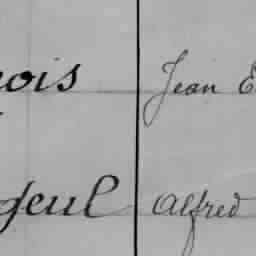 nois Jean E
geul Alfred